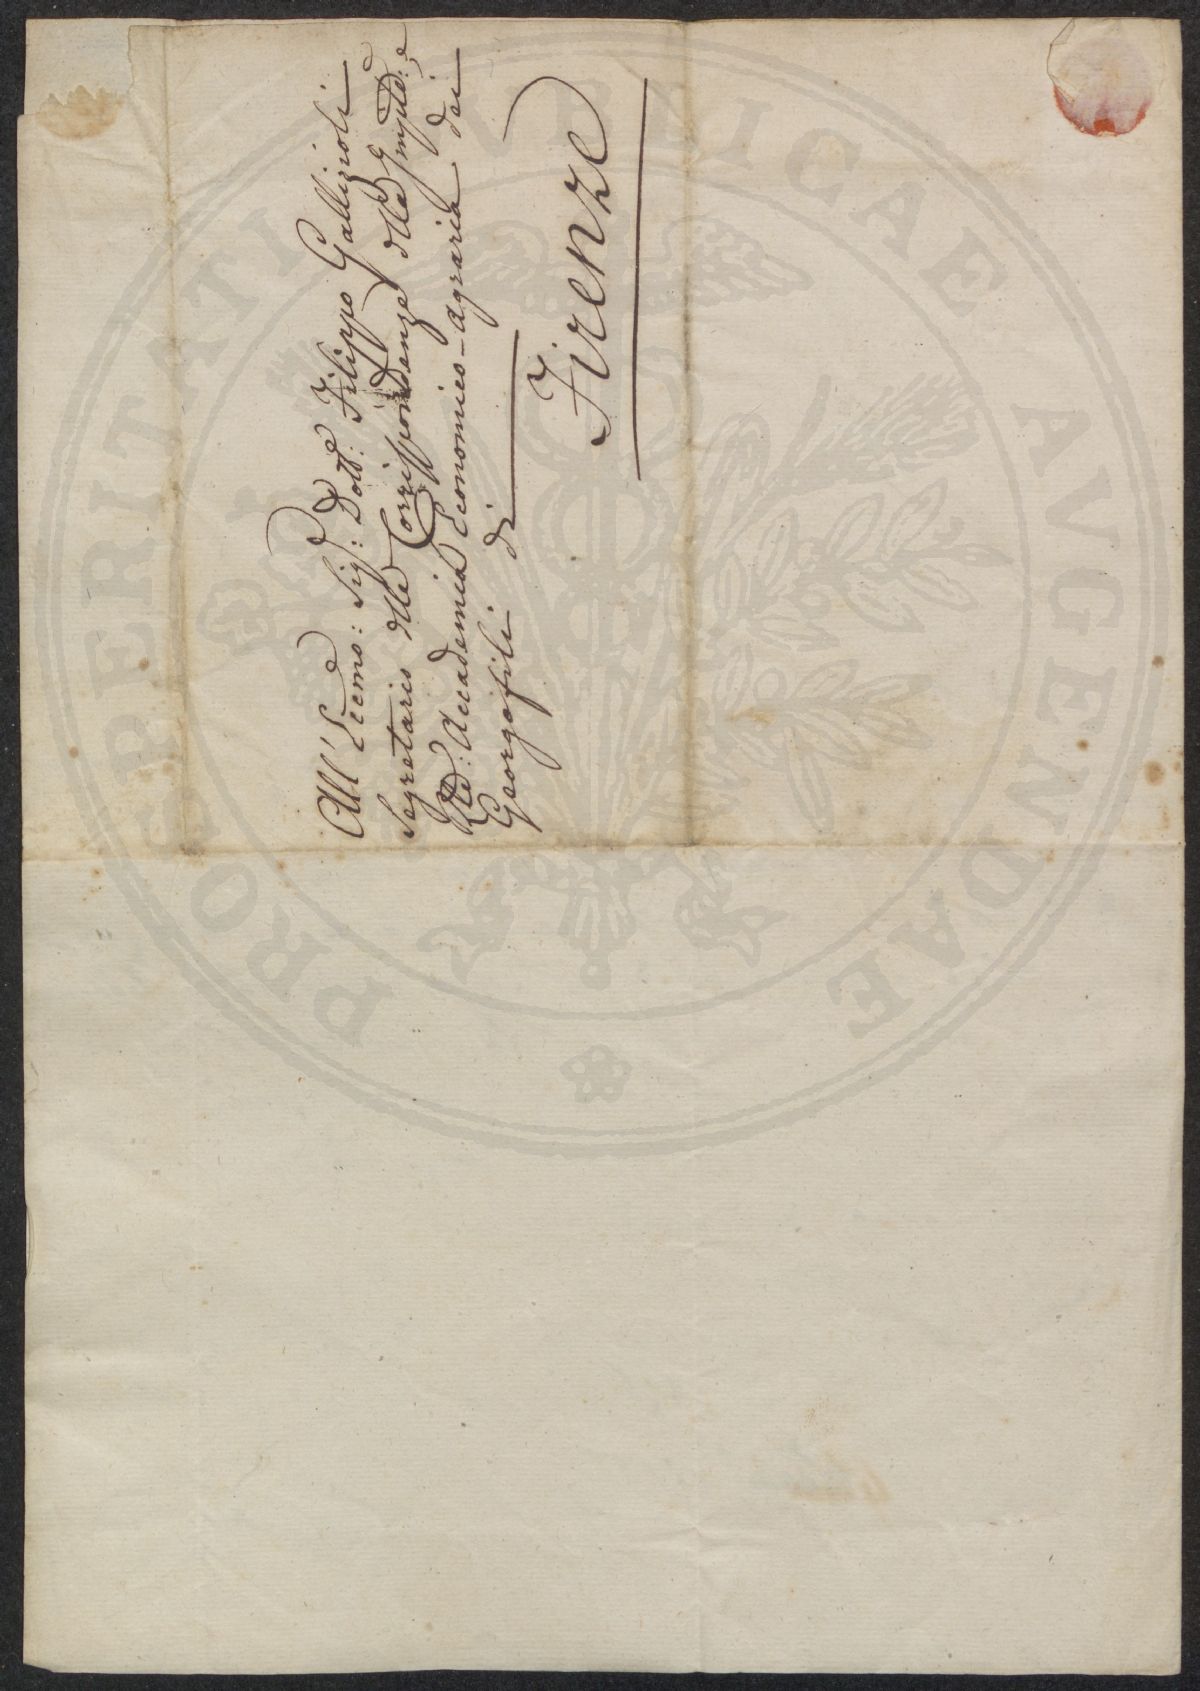 All' Eccmo: Sig:e Dott:e Filippo Gallizioli
Segretario delle Corrispondenze della
Rle: Accademia Economico-Agraria dei
Georgofili di
Firenze
PROSPERITATI PVBLICAE AVGENDAE